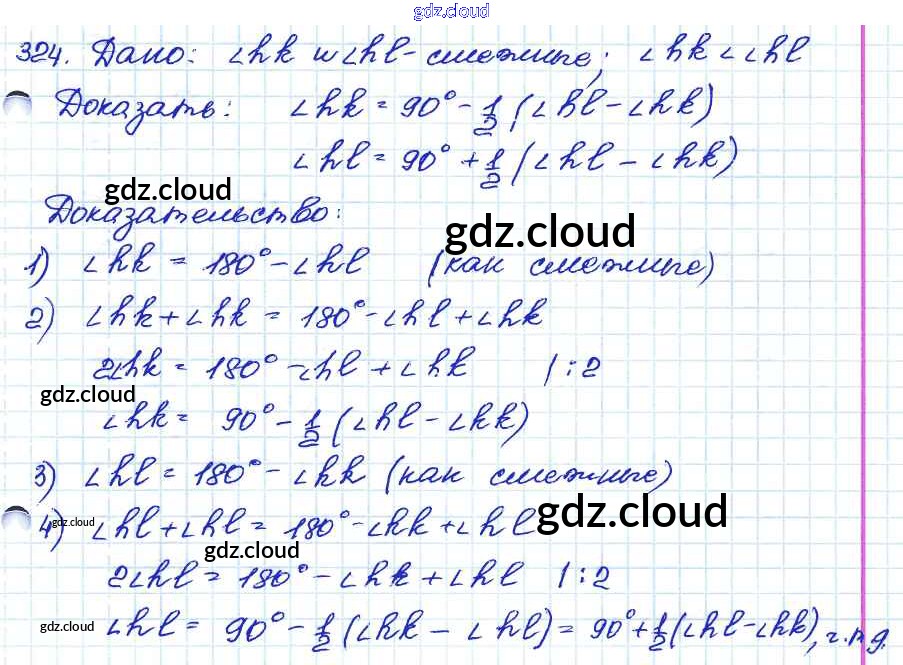 gdz.cloud
324. Дано: ∠hk и ∠hl - смежные; ∠hk < ∠hl
Доказать: ∠hk = 90° - 1/2 (∠hl - ∠hk)
∠hl = 90° + 1/2 (∠hl - ∠hk)
gdz.cloud
Доказательство:
gdz.cloud
1) ∠hk = 180° - ∠hl (как смежные)
2) ∠hk + ∠hk = 180° - ∠hl + ∠hk
2∠hk = 180° - ∠hl + ∠hk | : 2
gdz.cloud
∠hk = 90° - 1/2 (∠hl - ∠hk)
3) ∠hl = 180° - ∠hk (как смежные)
gdz.cloud
4) ∠hl + ∠hl = 180° - ∠hk + ∠hl
gdz.cloud
gdz.cloud
2∠hl = 180° - ∠hk + ∠hl | : 2
gdz.cloud
∠hl = 90° - 1/2 (∠hk - ∠hl) = 90° + 1/2 (∠hl - ∠hk), ч.т.д.